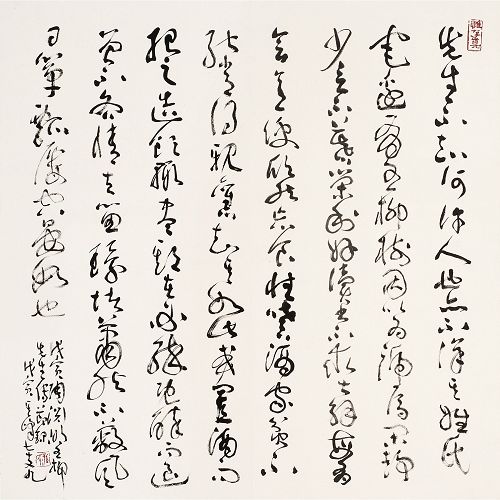 先生不知何许人也亦不详其姓氏
宅邊有五柳樹因以为號焉闲静
少言不慕榮利好讀書不求甚解每有
會意便欣然忘食性嗜酒家貧不
能常得親舊知其如此或置酒而
招之造飲輒盡期在必醉既醉而退
曾不吝情去留環堵蕭然不蔽風
日簞瓢屢空晏如也
陶淵明五柳
先生傳節錄
戊寅